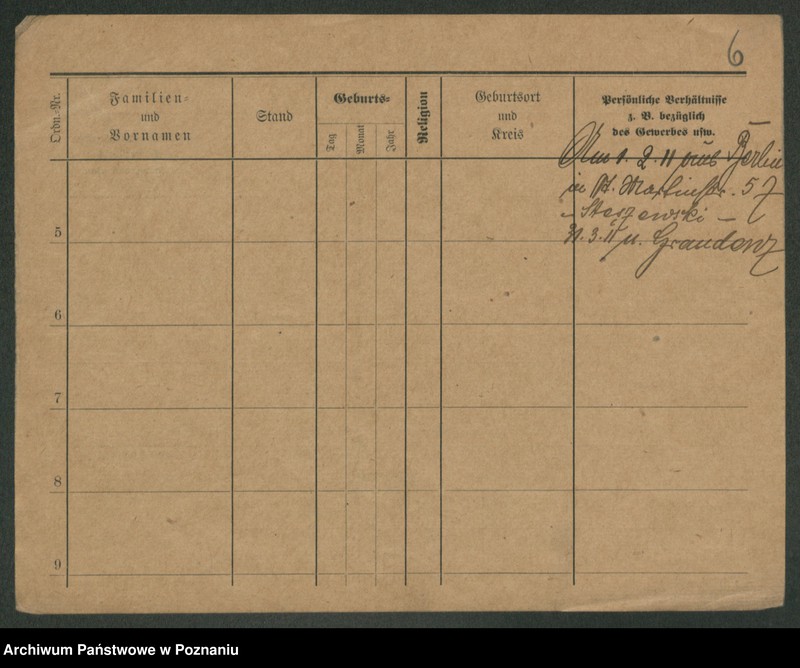 6
Ordn.-Nr.
Familien-
und
Vornamen
Stand
Geburts-
Tag
Monat
Jahr
Religion
Geburtsort
und
Kreis
Persönliche Verhältnisse
z. B. bezüglich
des Gewerbes usw.
Am 1. 2. 11 aus Berlin
in St. Martinstr. 57
Staszewski —
31. 3. 11 n. Graudenz
5
6
7
8
9
Archiwum Państwowe w Poznaniu